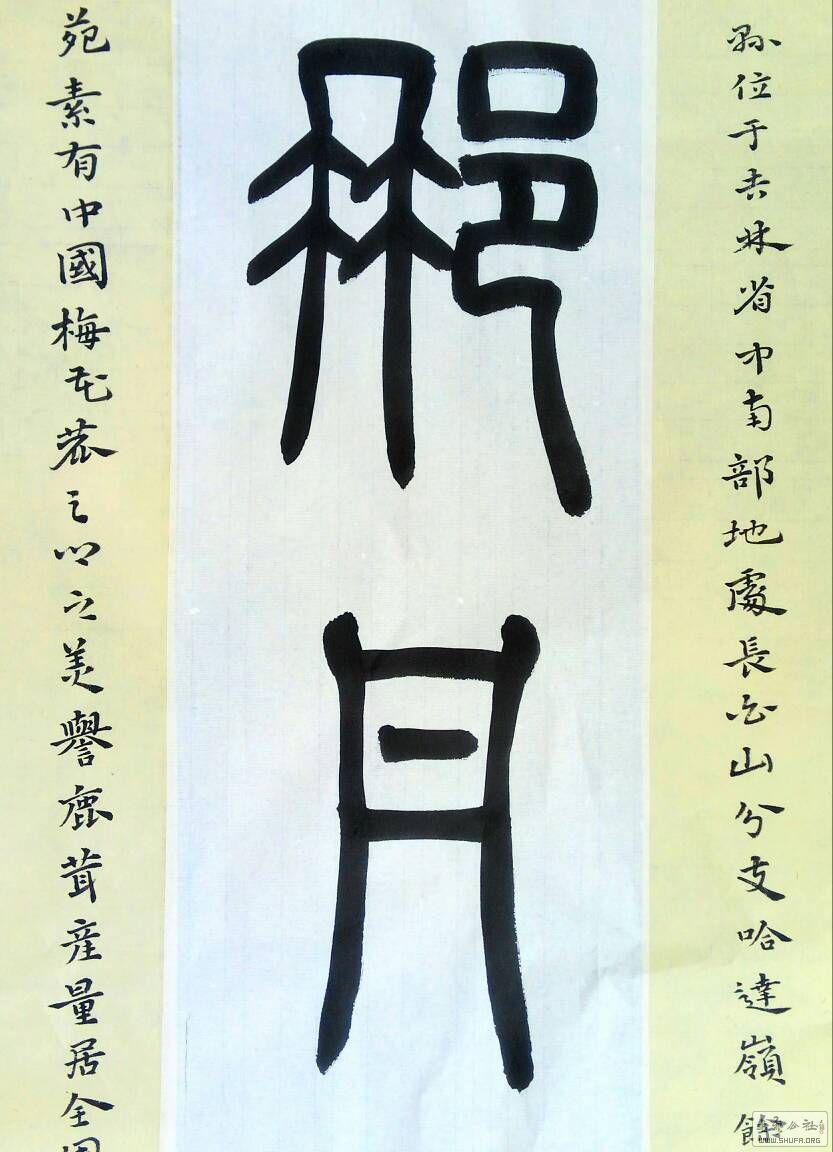 縣位于吉林省中南部地處長白山分支哈達嶺餘
那丹
苑素有中國梅花鹿之鄉之美譽鹿茸産量居全國
WWW.SHUFA.ORG